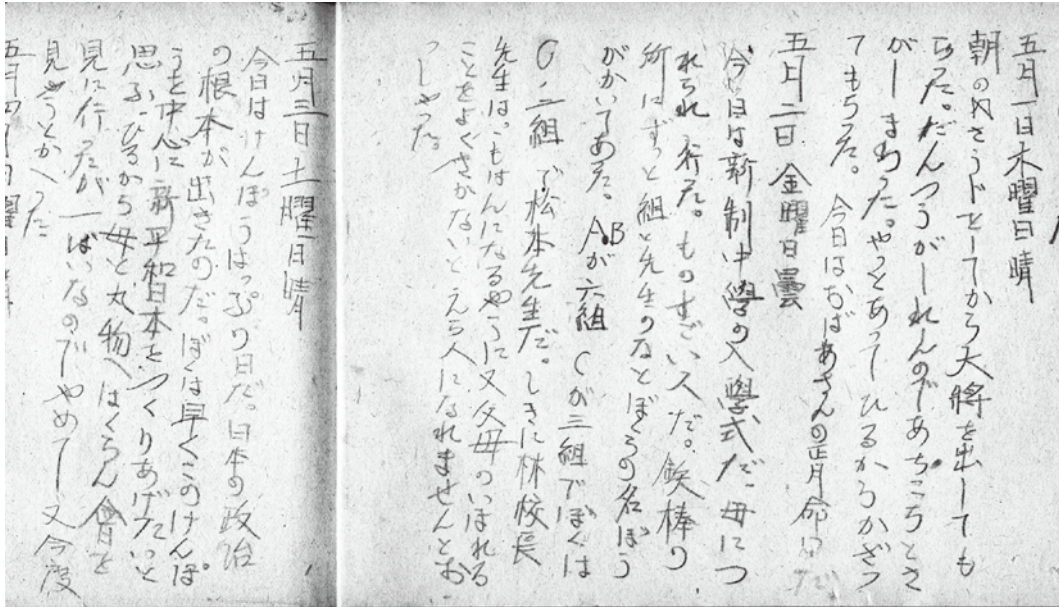 五月一日木曜日晴
朝のぬさうドとしてから大將を出しても
らった。だんつうがしれんのであちこちとさ
がしまわった。やっとあってひるからかざっ
てもらった。今日はおばあさんの正月命日だ
五月二日 金曜日曇
今日は新制中學の入學式だ。母につ
れられ行た。ものすごい人だ。鉄棒の
所にずっと組と先生のなとぼくの名ぼう
がかいてあた。ABが六組 Cが三組でぼくは
C・二組で松本先生だ。しきに林校長
先生は、もはんになるやうに又父母のいはれる
ことをよくきかないとえら人になれませんとお
っしゃった。
五月三日土曜日晴
今日はけんぽうはっぷの日だ。日本の政治
の根本が出きたのだ。ぼくは早くこのけんぽ
うを中心に新平和日本をつくりあげたいと
思ふ。ひるから母と丸物へはくらん會を
見に行ったが一ぱいなのでやめてし又今度
見やうとかへった
五月四日日曜日